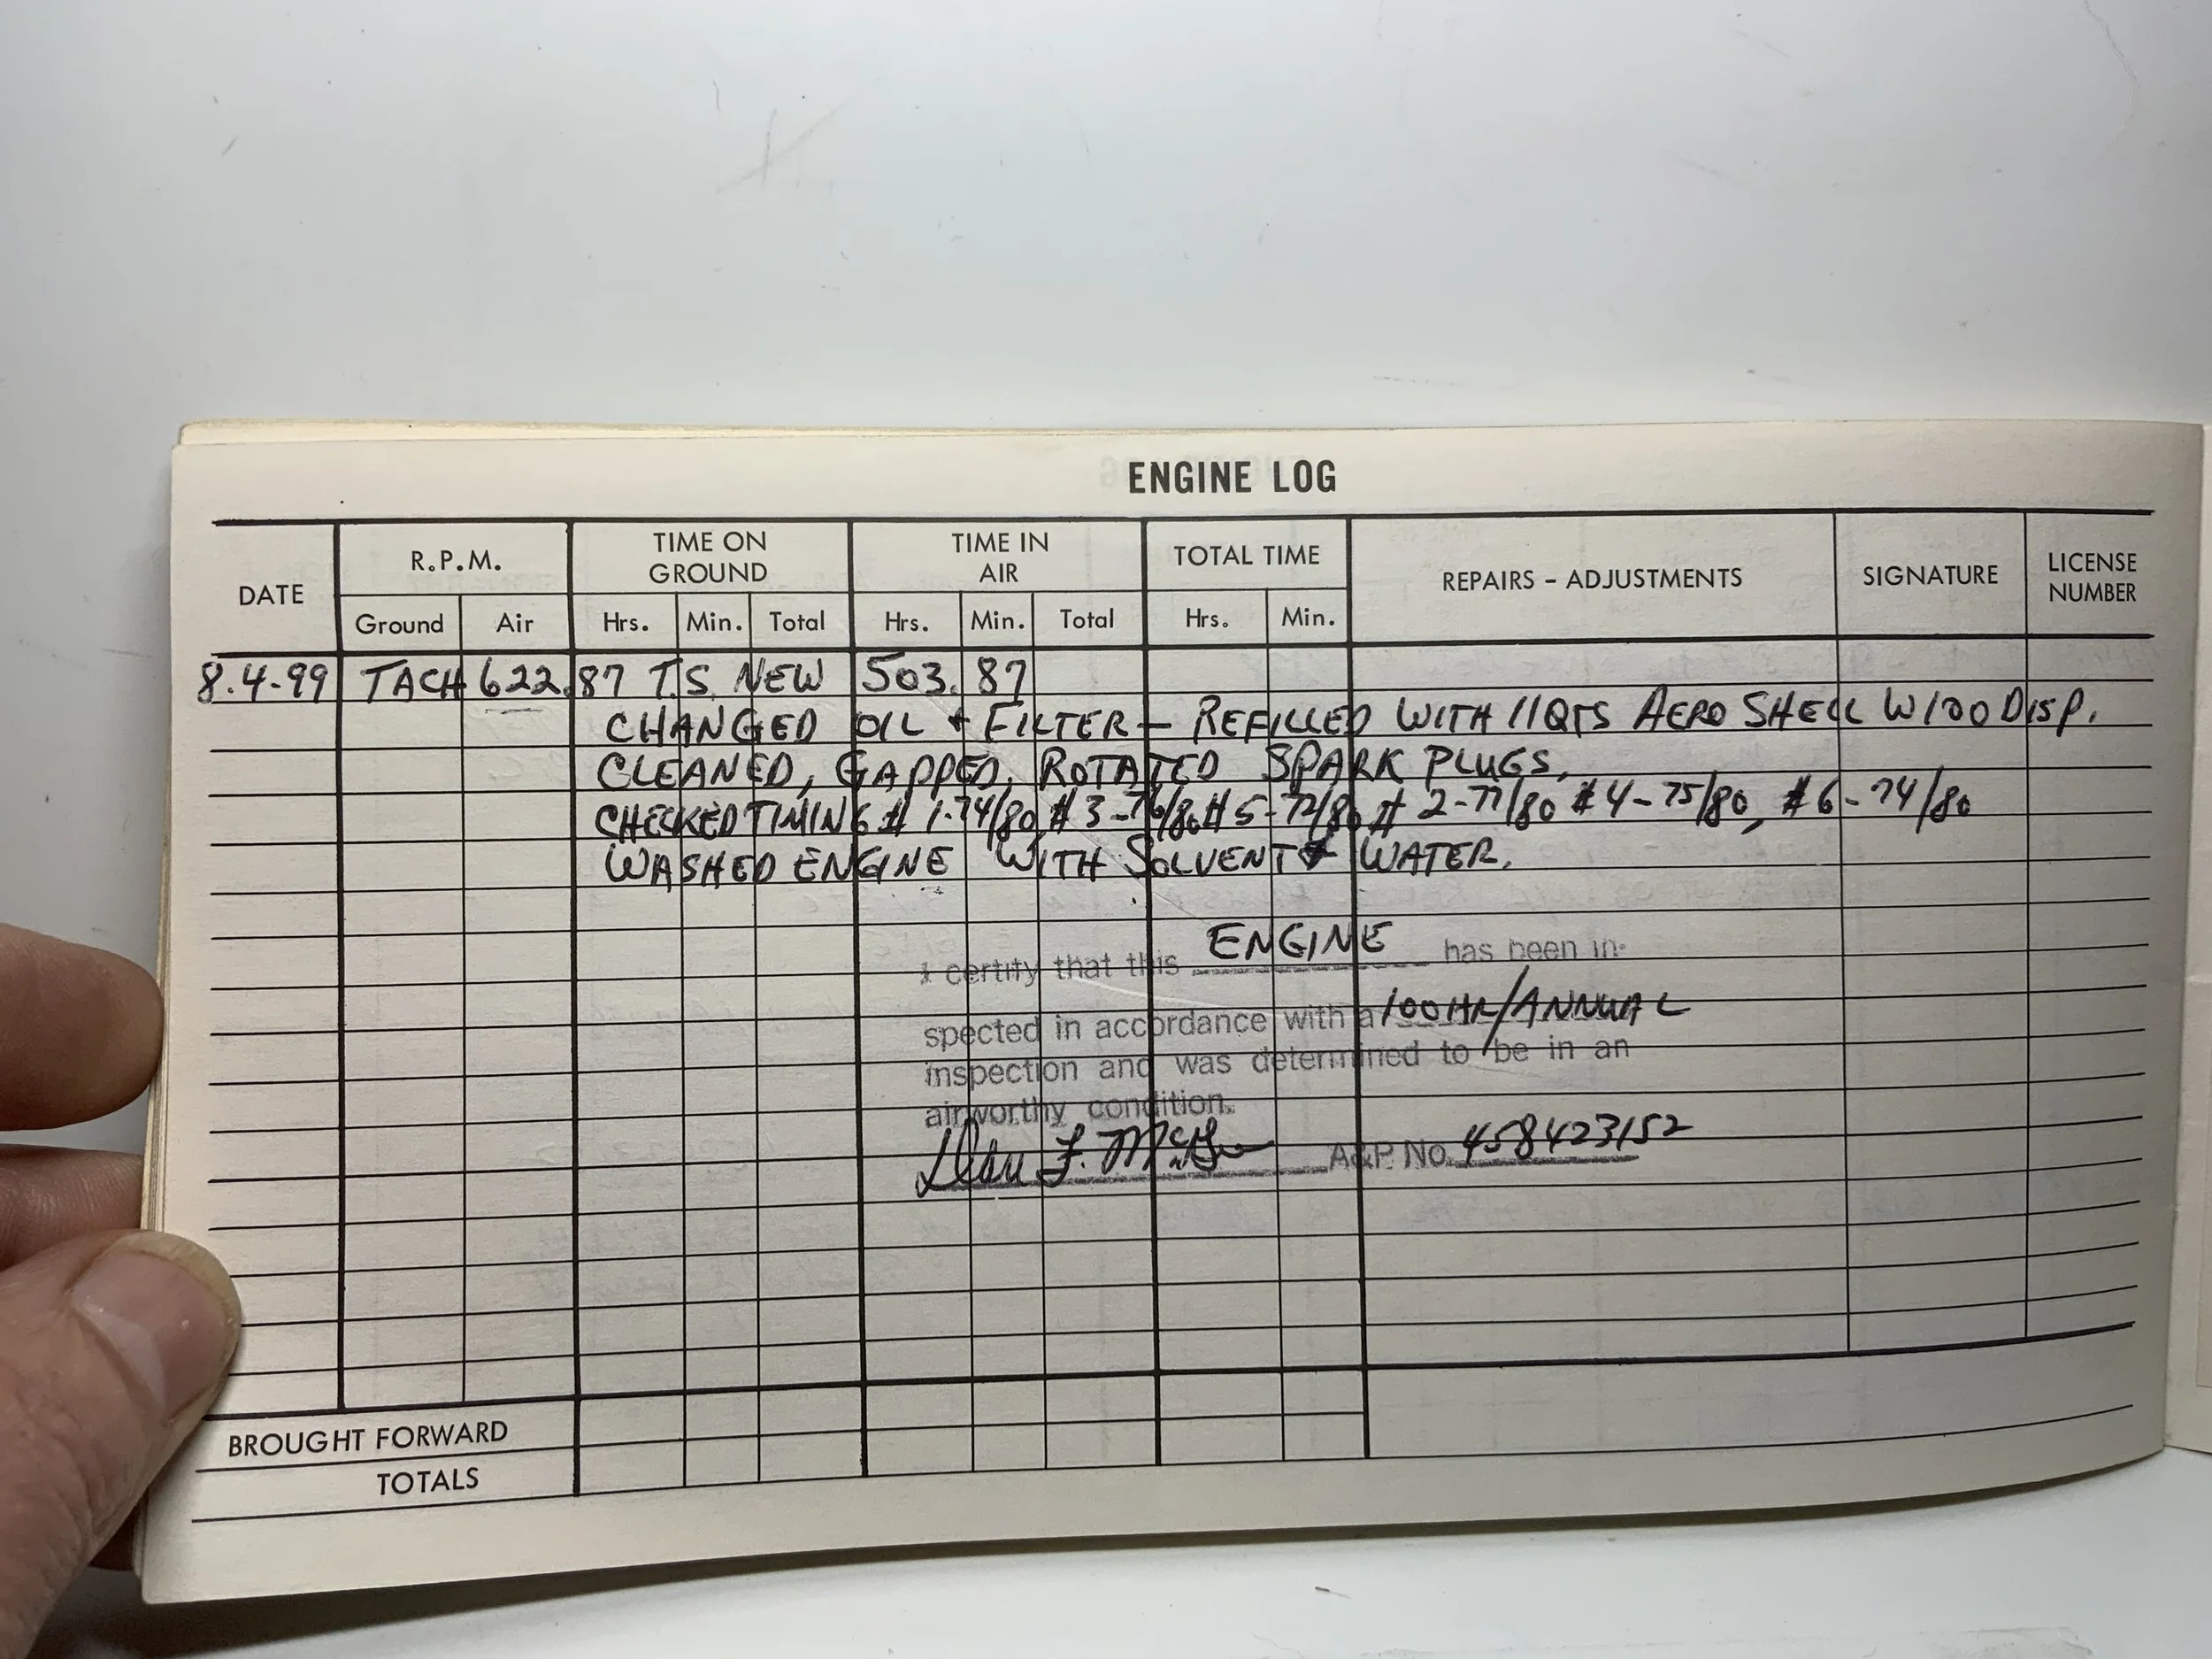 ENGINE LOG
DATE R.P.M. TIME ON GROUND TIME IN AIR TOTAL TIME REPAIRS – ADJUSTMENTS SIGNATURE LICENSE NUMBER
Ground Air Hrs. Min. Total Hrs. Min. Total Hrs. Min.
8.4-99 TACH 622.87 T.S. NEW 503.87
CHANGED OIL + FILTER — REFILLED WITH 11QTS AERO SHELL W100 DISP.
CLEANED, GAPPED, ROTATED SPARK PLUGS.
CHECKED TIMING # 1-74/80, # 3-76/80 # 5-72/80 # 2-77/80 # 4-75/80, # 6-74/80
WASHED ENGINE WITH SOLVENT & WATER.
I certify that this ENGINE has been in-
spected in accordance with a 100HR/ANNUAL
inspection and was determined to be in an
airworthy condition.
F. A&P. No. 458423152
BROUGHT FORWARD
TOTALS